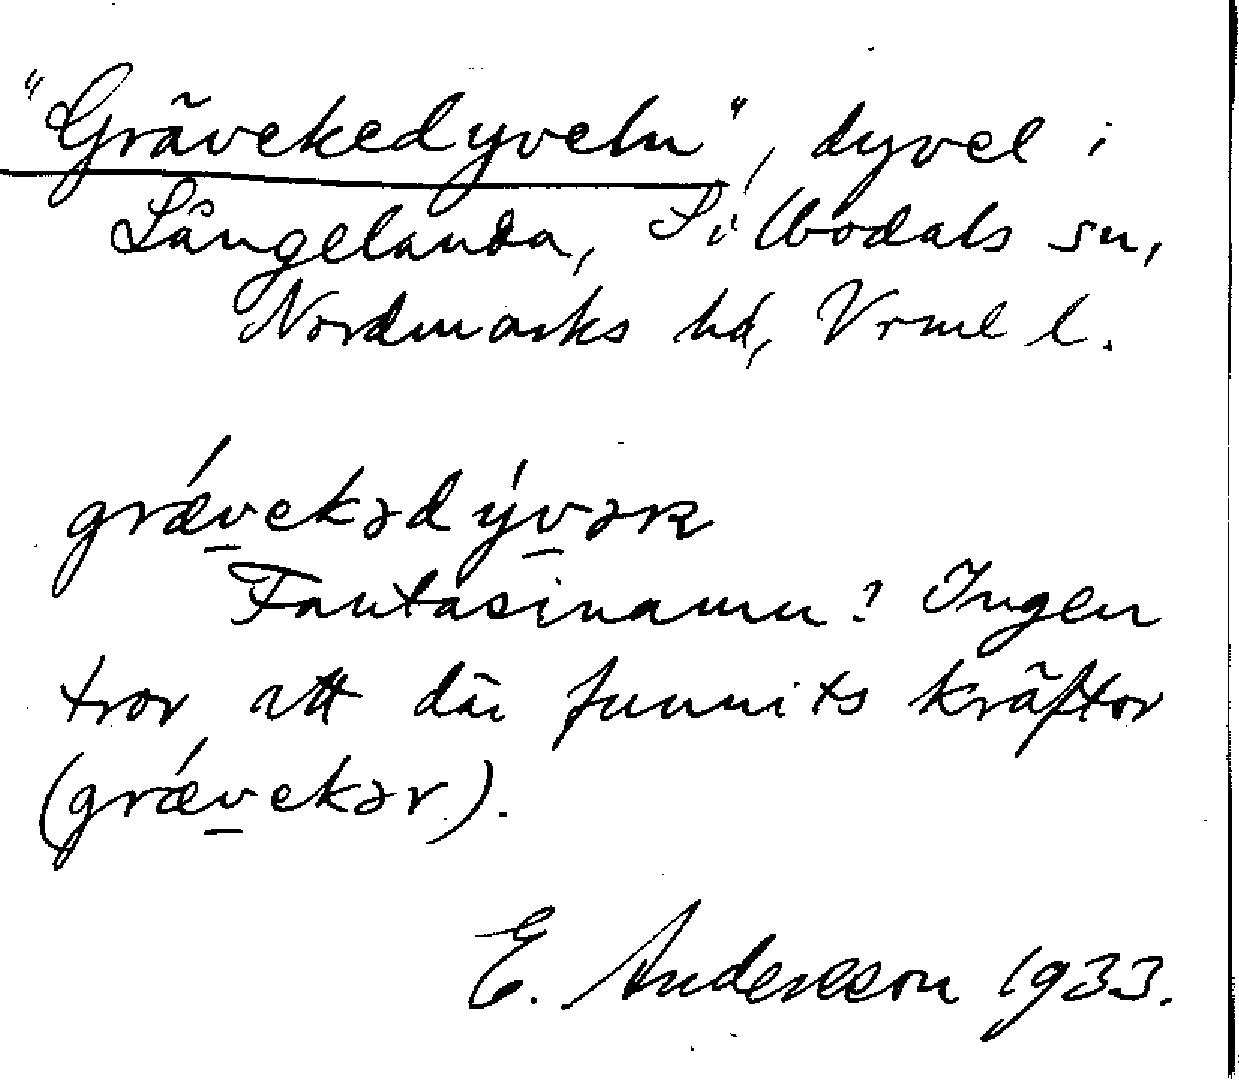 "Grävekedyveln", dyvel i
Långelanda, Sillbodals sn,
Nordmarks hd, Vrml l.
grǽvekədývəʀ
Fantasinamn? Ingen
tror att där funnits kräftor
(grǽvekər).
E. Andersson 1933.